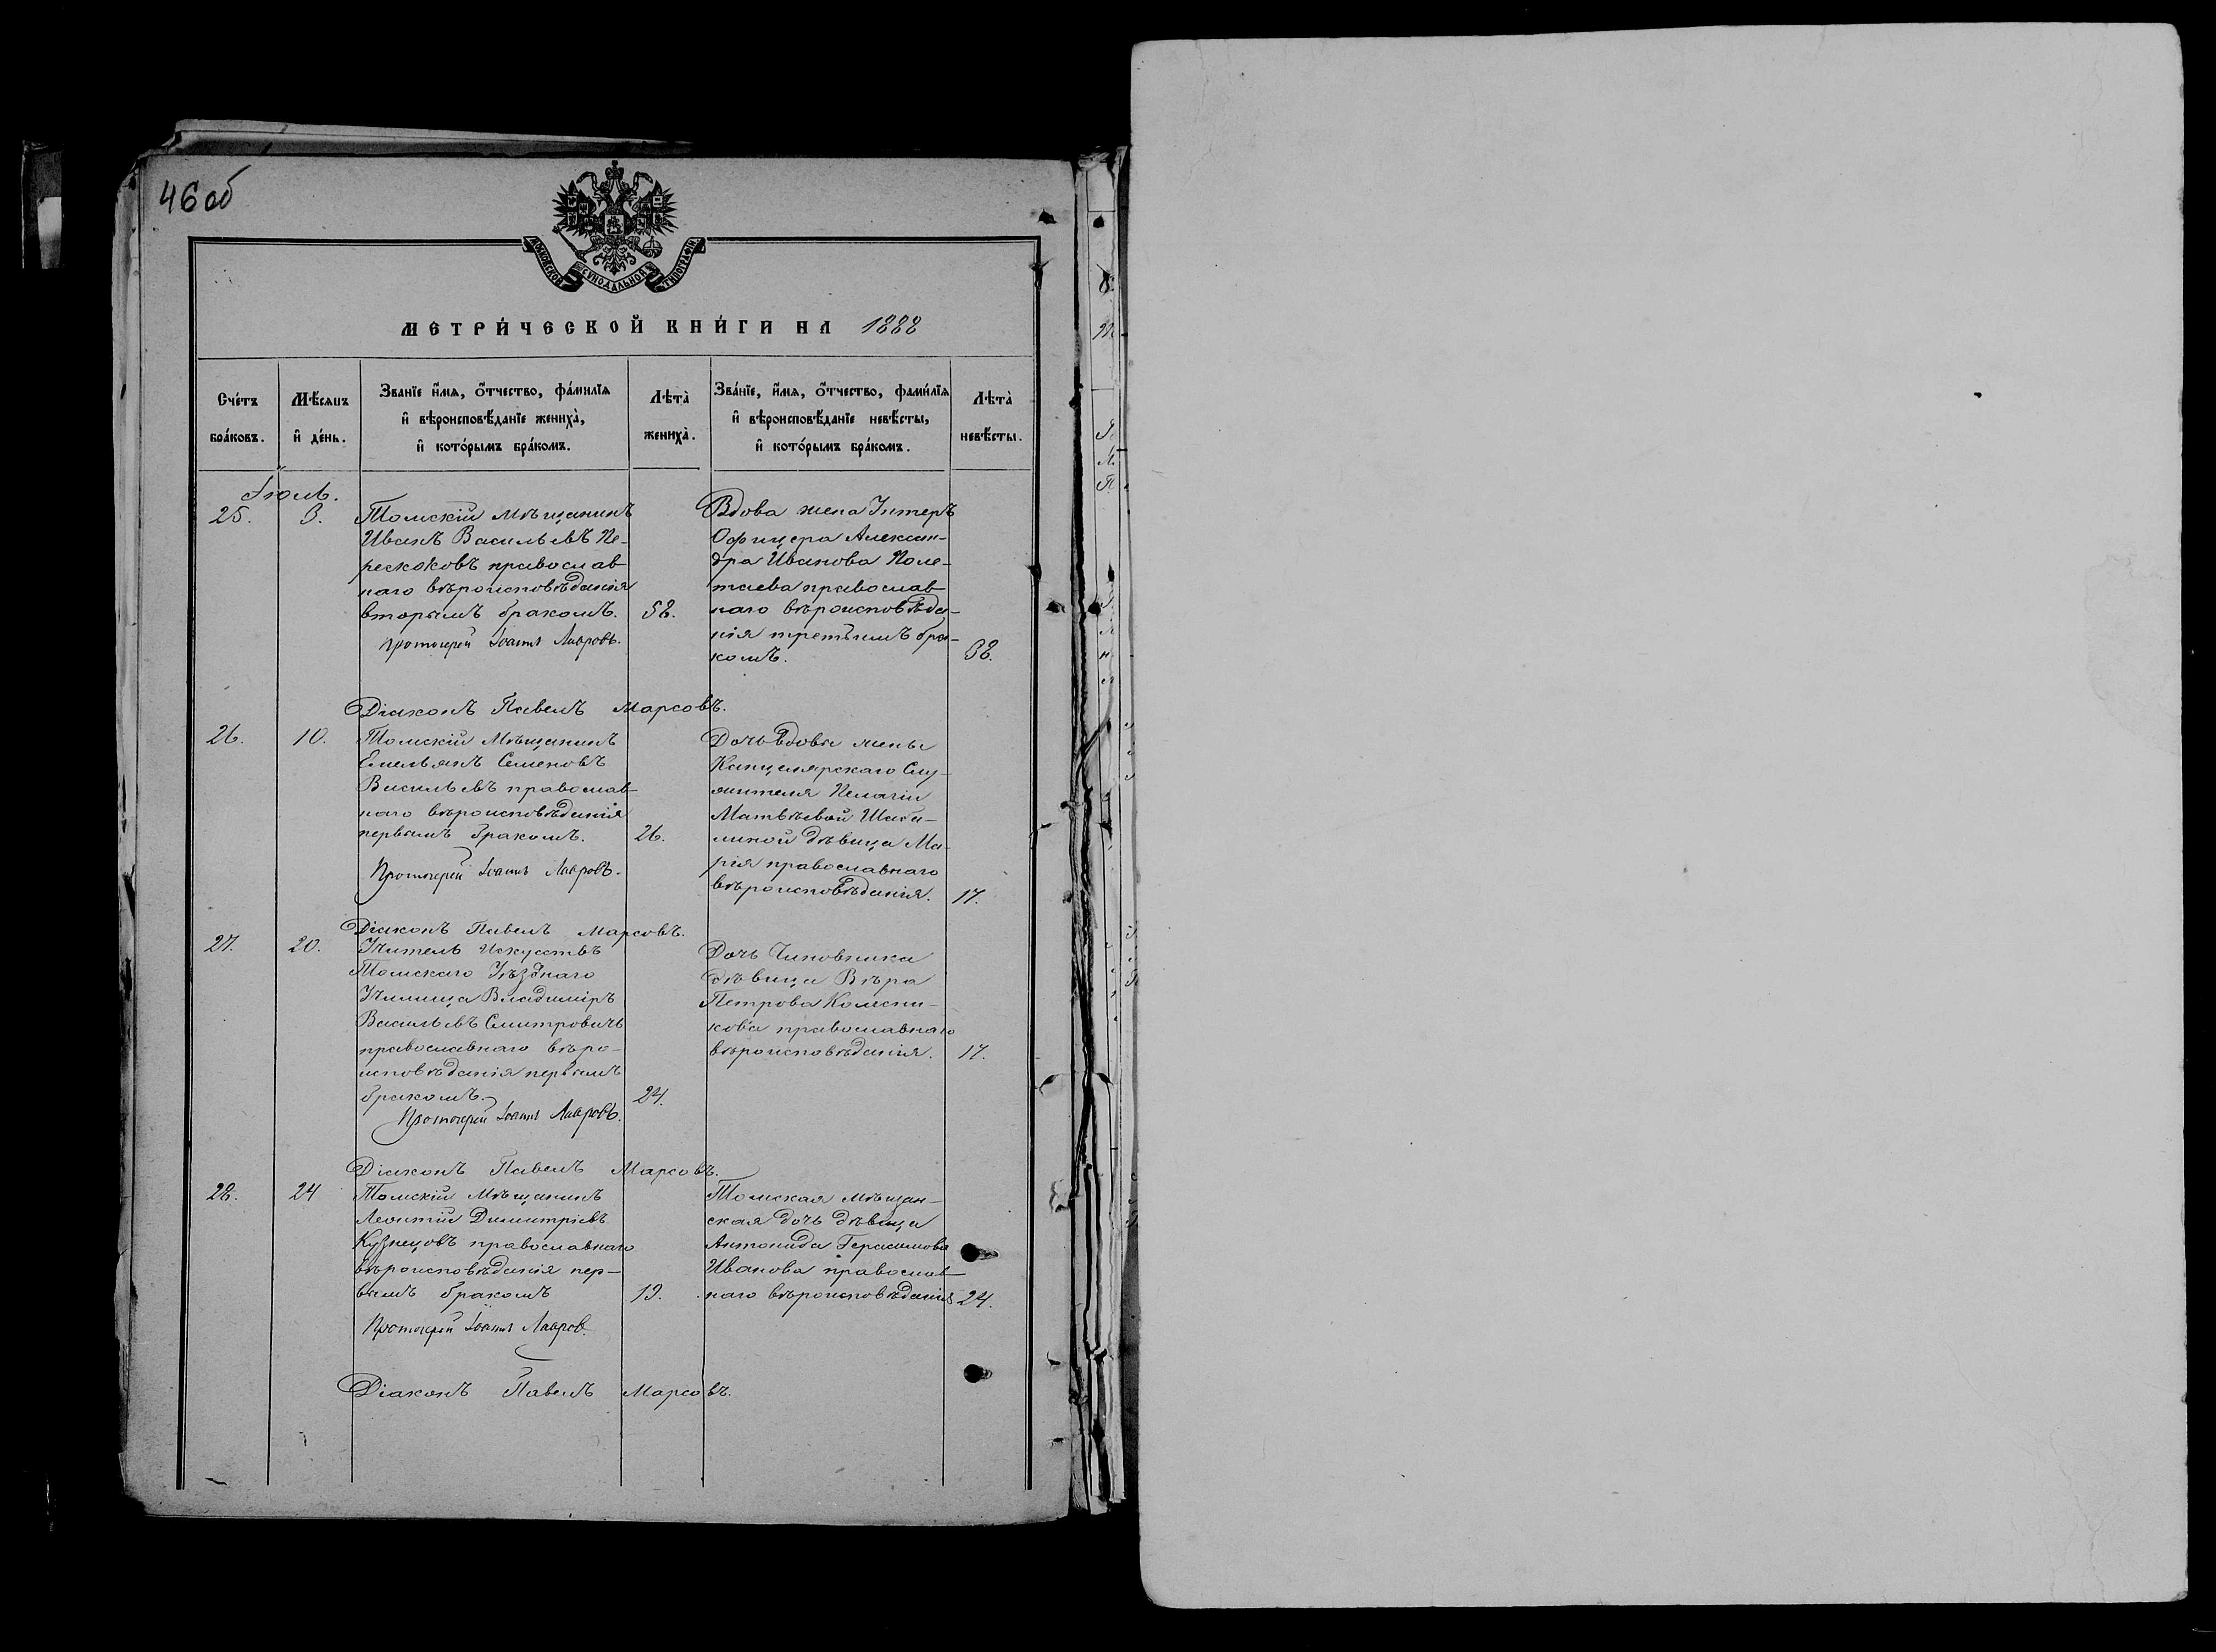 46 об
МОСКОВСКОЙ СѴНОДАЛЬНОЙ ТИПОГРАФІИ
МЕТРИ́ЧЕСКОЙ КНИ́ГИ НА 1888
Сче́тъ бра́ковъ.
Мѣ́сяцъ и҆ де́нь.
Зва́нїе и҆́мѧ, ѻ҆́тчество, фамѝлїѧ
и҆ вѣроисповѣ́данїе жениха̀,
и҆ кото́рымъ бра́комъ.
Лѣта̀ жениха̀.
Зва́нїе, и҆́мѧ, ѻ҆́тчество, фамѝлїѧ
и҆ вѣроисповѣ́данїе невѣ́сты,
и҆ кото́рымъ бра́комъ.
Лѣта̀ невѣ́сты.
Іюль.
25. 3.
Томскій Мѣщанинъ
Иванъ Васильевъ Пе-
рескоковъ православ
наго вѣроисповѣданія
вторымъ бракомъ. 58.
Протоіерей Іоаннъ Лавровъ.
Вдова жена Унтеръ
Офицера Алексан-
дра Иванова Поле-
таева православ
наго вѣроисповѣда-
нія третьимъ бра-
комъ. 38.
Діаконъ Павелъ Марсовъ.
26. 10.
Томскій Мѣщанинъ
Емельянъ Семеновъ
Васильевъ православ
наго вѣроисповѣданія
первымъ бракомъ. 26.
Протоіерей Іоаннъ Лавровъ.
Дочь вдовы жены
Канцелярскаго Слу-
жителя Пелагіи
Матвѣевой
дѣвица Ма-
рія православнаго
вѣроисповѣданія. 17.
Діаконъ Павелъ Марсовъ.
27. 20.
Учитель Искусствъ
Томскаго Уѣзднаго
Училища Владиміръ
Васильевъ Смитровичъ
православнаго вѣро-
исповѣданія первымъ
бракомъ. 24.
Протоіерей Іоаннъ Лавровъ.
Дочь Чиновника
дѣвица Вѣра
Петрова Колесни-
кова православнаго
вѣроисповѣданія. 17.
Діаконъ Павелъ Марсовъ.
28. 24
Томскій Мѣщанинъ
Леонтій Димитріевъ
Кузнецовъ православнаго
вѣроисповѣданія пер-
вымъ бракомъ 19.
Протоіерей Іоаннъ Лавров.
Томская мѣщан-
ская дочь дѣвица
Антонида Герасимова
Иванова православ
наго вѣроисповѣданія 24.
Діаконъ Павелъ Марсовъ.